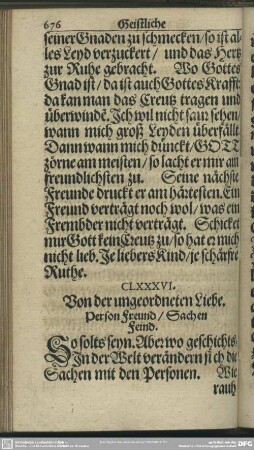 676 Geistliche
seiner Gnaden zu schmecken/ so ist al-
les Leyd verzuckert / und das Hertz
zur Ruhe gebracht. Wo Gottes
Gnad ist/ da ist auch Gottes Krafft:
da kan man das Creutz tragen und
überwindẽ. Ich wil nicht saur sehen/
wann mich groß Leyden überfällt.
Dann wann mich dünckt/ GOTT
zörne am meisten/ so lacht er mir am
freundlichsten zu. Seine nächste
Freunde druckt er am härtesten. Ein
Freund verträgt noch wol/ was ein
Frembder nicht verträgt. Schicket
mir Gott kein Creutz zu/ so hat er mich
nicht lieb. Je liebers Kind/ je schärffre
Ruthe.
CLXXXVI.
Von der ungeordneten Liebe.
Person Freund / Sachen
Feind.
So solts seyn. Aber wo geschichts?
In der Welt verändern sich die
Sachen mit den Personen. Wie
rauh